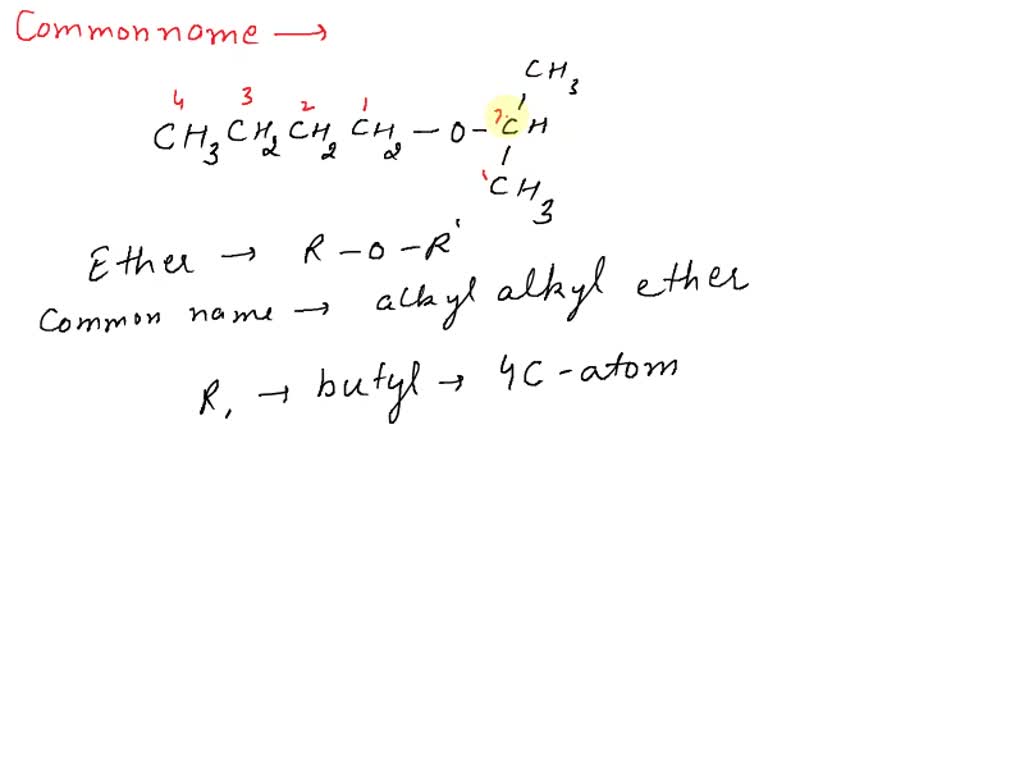 Common name →
CH3
4 3 2 1
CH3 CH2 CH2 CH2 - O - 2 CH
1 CH3
Ether → R - O - R'
Common name → alkyl alkyl ether
R, → butyl → 4C - atom